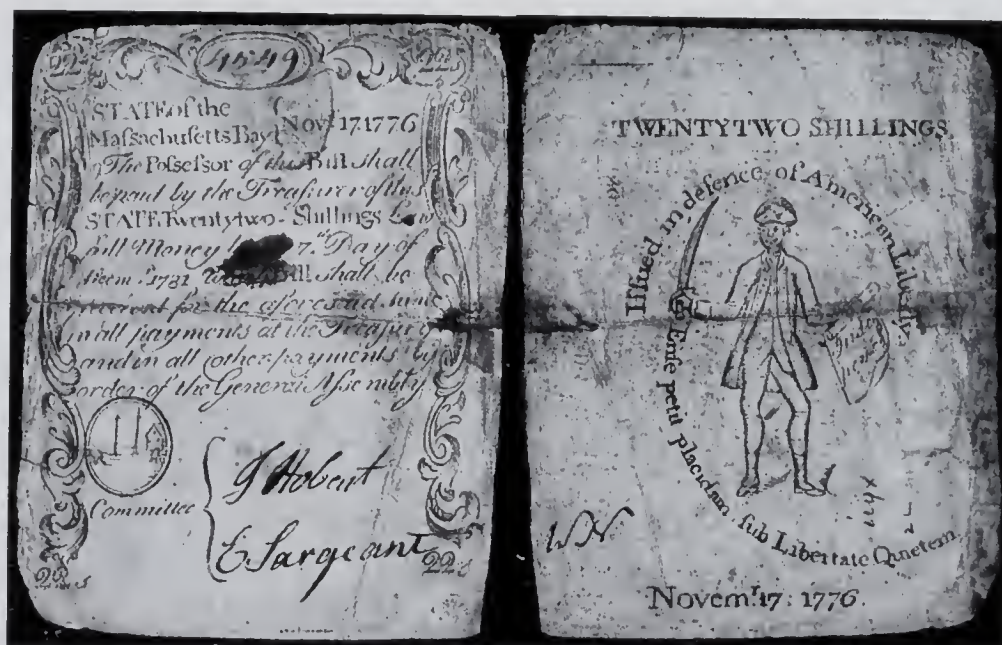 22s 4549 22s
STATE of the
Maſsachusetts Bay Nov.r 17.1776
The Poſseſsor of this Bill shall
be paid by the Treaſurer of this
STATE Twentytwo-Shillings Law
full Money 7.th Day of
1781 Bill shall be
for the aforesaid
in all payments at the Treaſury
and in all other payments by
order of the General Aſsembly
Committee
J Hobert
E Sargeant
22s 22s
TWENTYTWO SHILLINGS.
Iſſued in defence of American Liberty.
Enſe petit placidam ſub Libertate Quietem
WN
Novem.r 17: 1776.